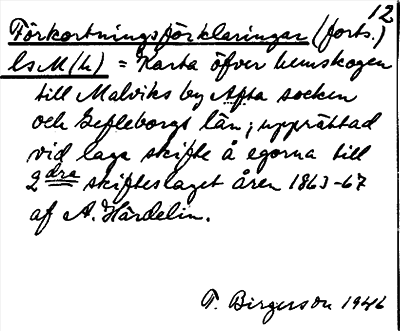 12
Förkortningsförklaringar (forts.)
ls M (h) = Karta öfver hemskogen
till Malviks by Alfta socken
och Gefleborgs län; upprättad
vid laga skifte å egorna till
2dra skifteslaget åren 1863-67
af A. Hårdelin.
T. Birgerson 1946